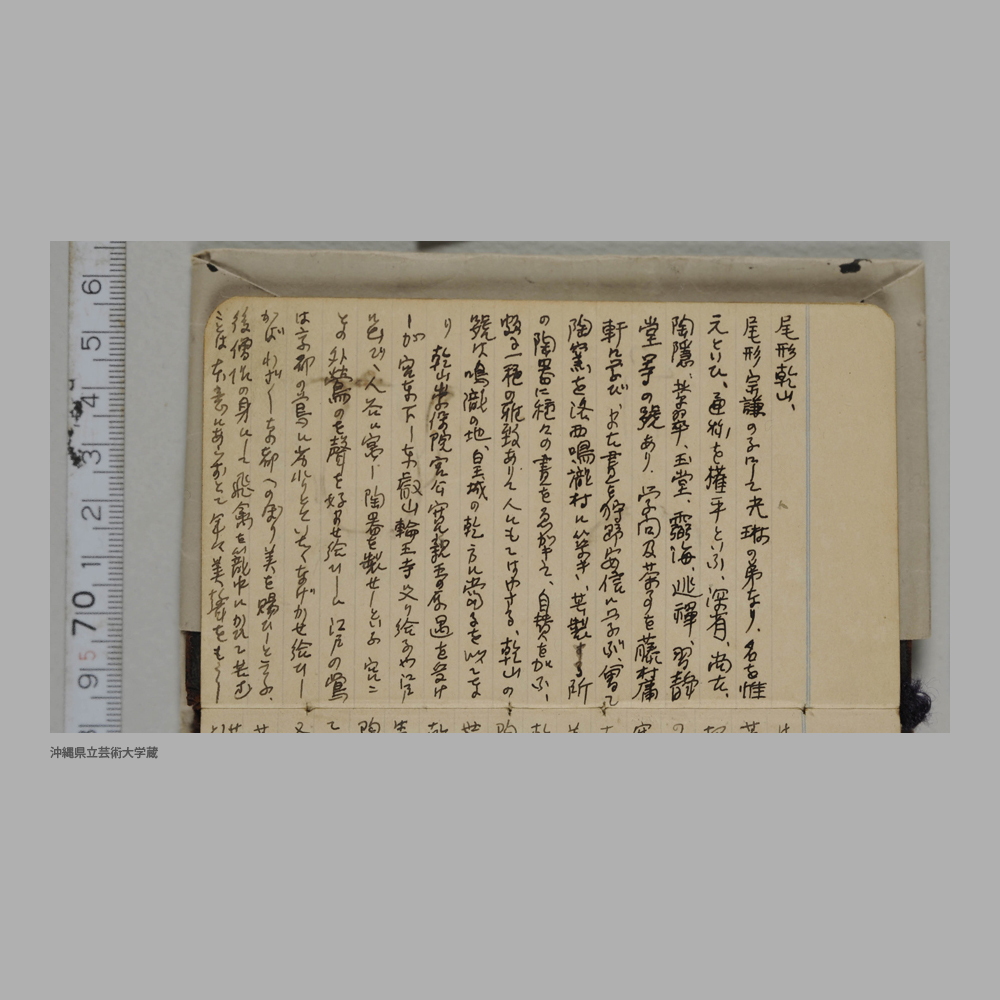 尾形乾山、
尾形宗謙の子にして光琳の弟なり、名を惟
元といひ、通称を権平といふ、深省、尚古、
陶隠、紫翠、玉堂、霊海、逃禅、習静
堂等の號あり、学問及茶事を藤村庸
軒に学び、また画を狩野安信に学ぶ、曽て
陶窯を洛西鳴瀧村に築き、其製する所
の陶器に種々の画をゑがきて、自賛をかふ、
頗る一種の雅致ありて人にもてはやさる、乾山の
號は鳴瀧の地、皇城の乾方に当るを以てな
り
乾山崇保院宮公寛親王の厚遇を受け
しが宮東下し東叡山輪王寺
人谷に窯し陶器を製せしといふ 宮
鶯の聲を好ませ給ひしに江戸の鶯
は京都の鶯に劣れりとて なげかせ給ひし
かば わざわざ京都への美を賜ひしと云ふ、
後僧侶の身にして飛禽を籠中にかひて
ことは本意にあらずとて
6 5 4 3 2 1 70 9 5
沖縄県立芸術大学蔵